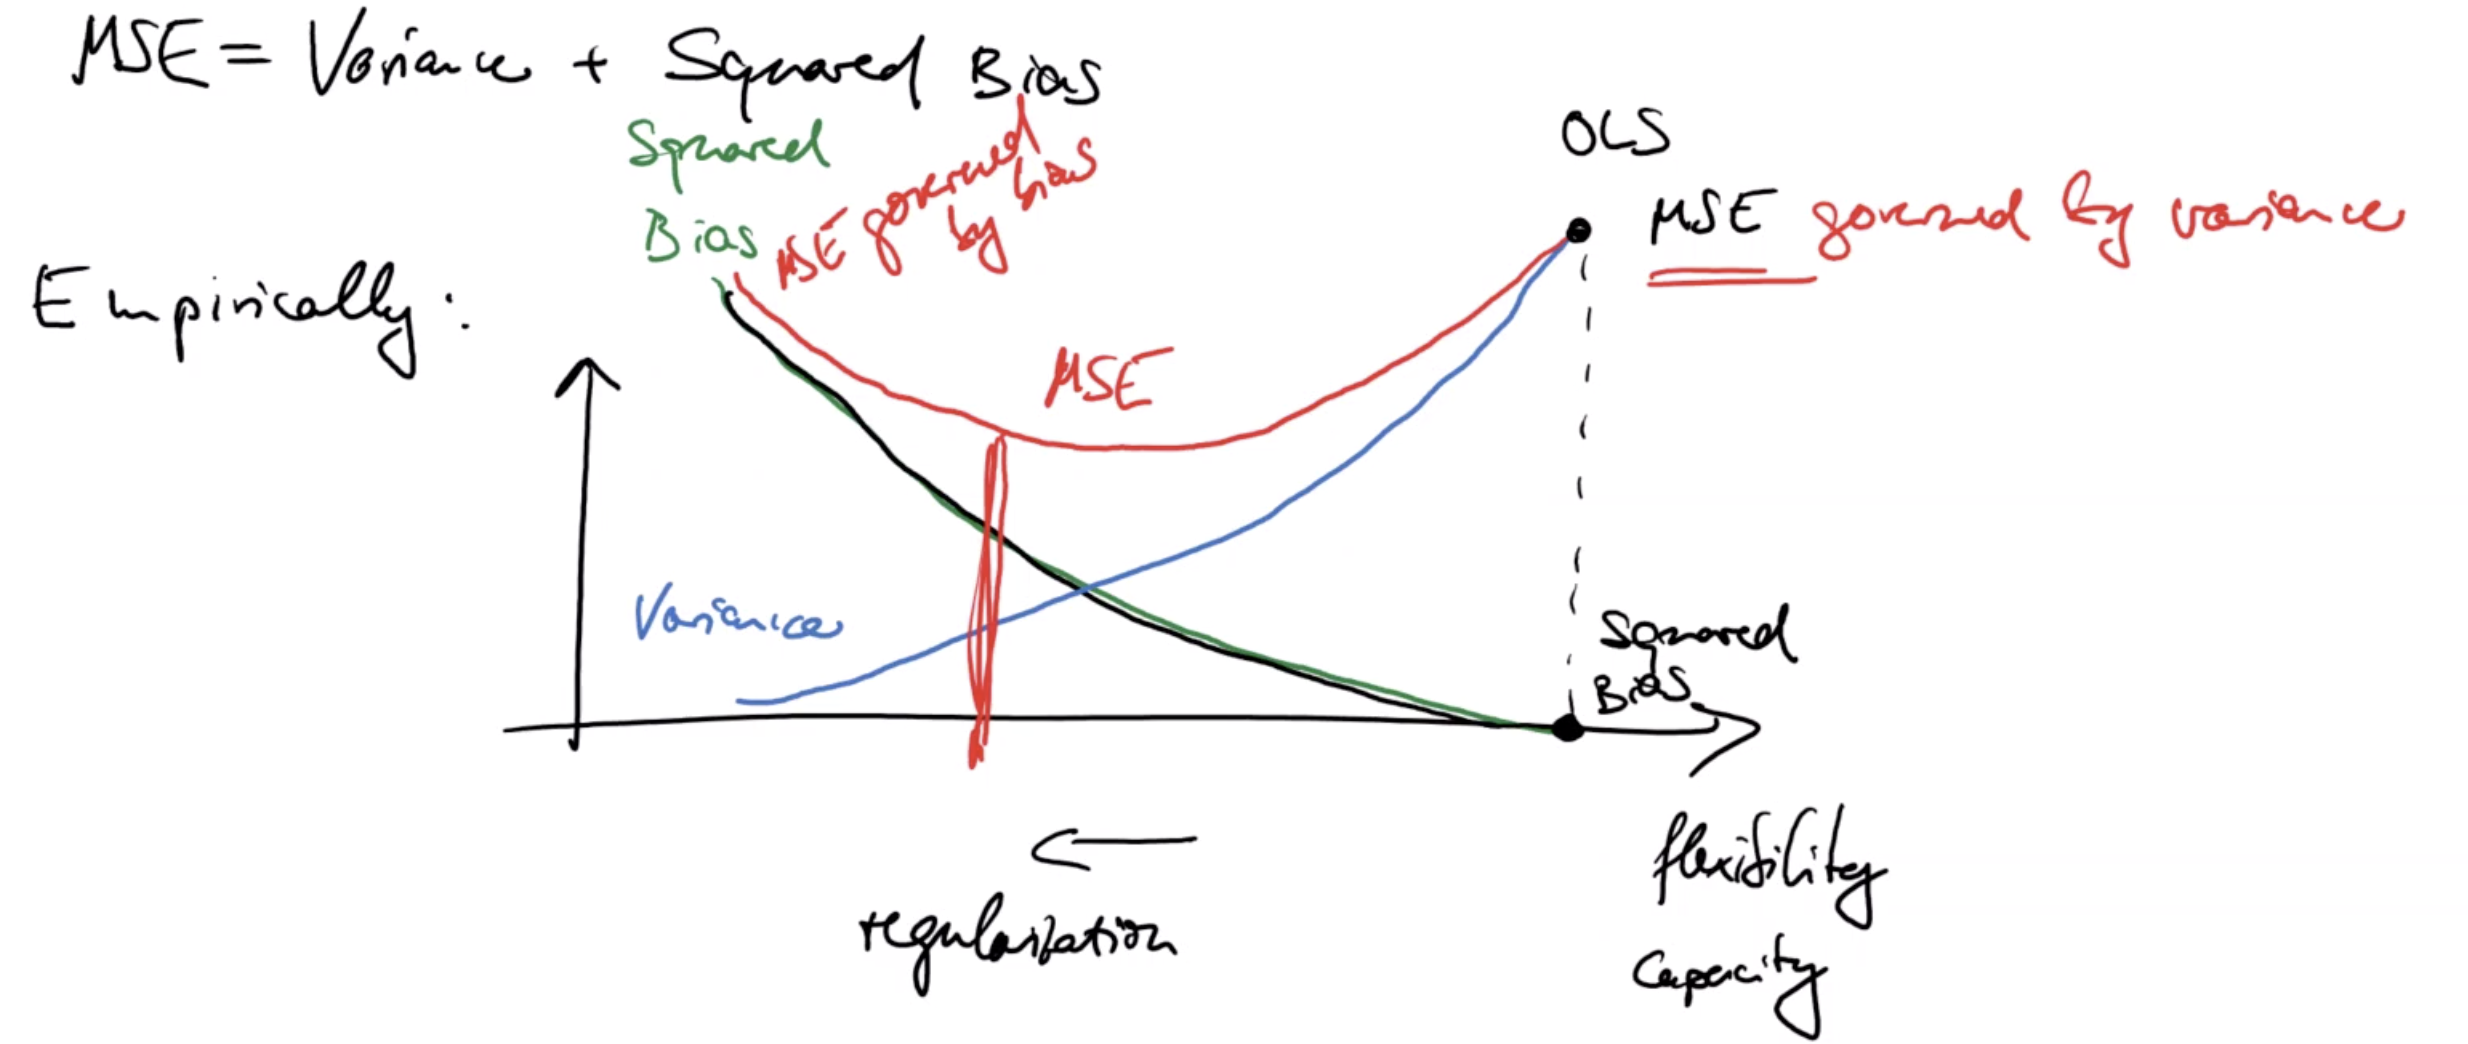 MSE = Variance + Squared Bias
Squared
Bias
MSE governed
by bias
OLS
MSE governed by variance
Empirically:
MSE
Variance
Squared
Bias
regularization
flexibility
Capacity